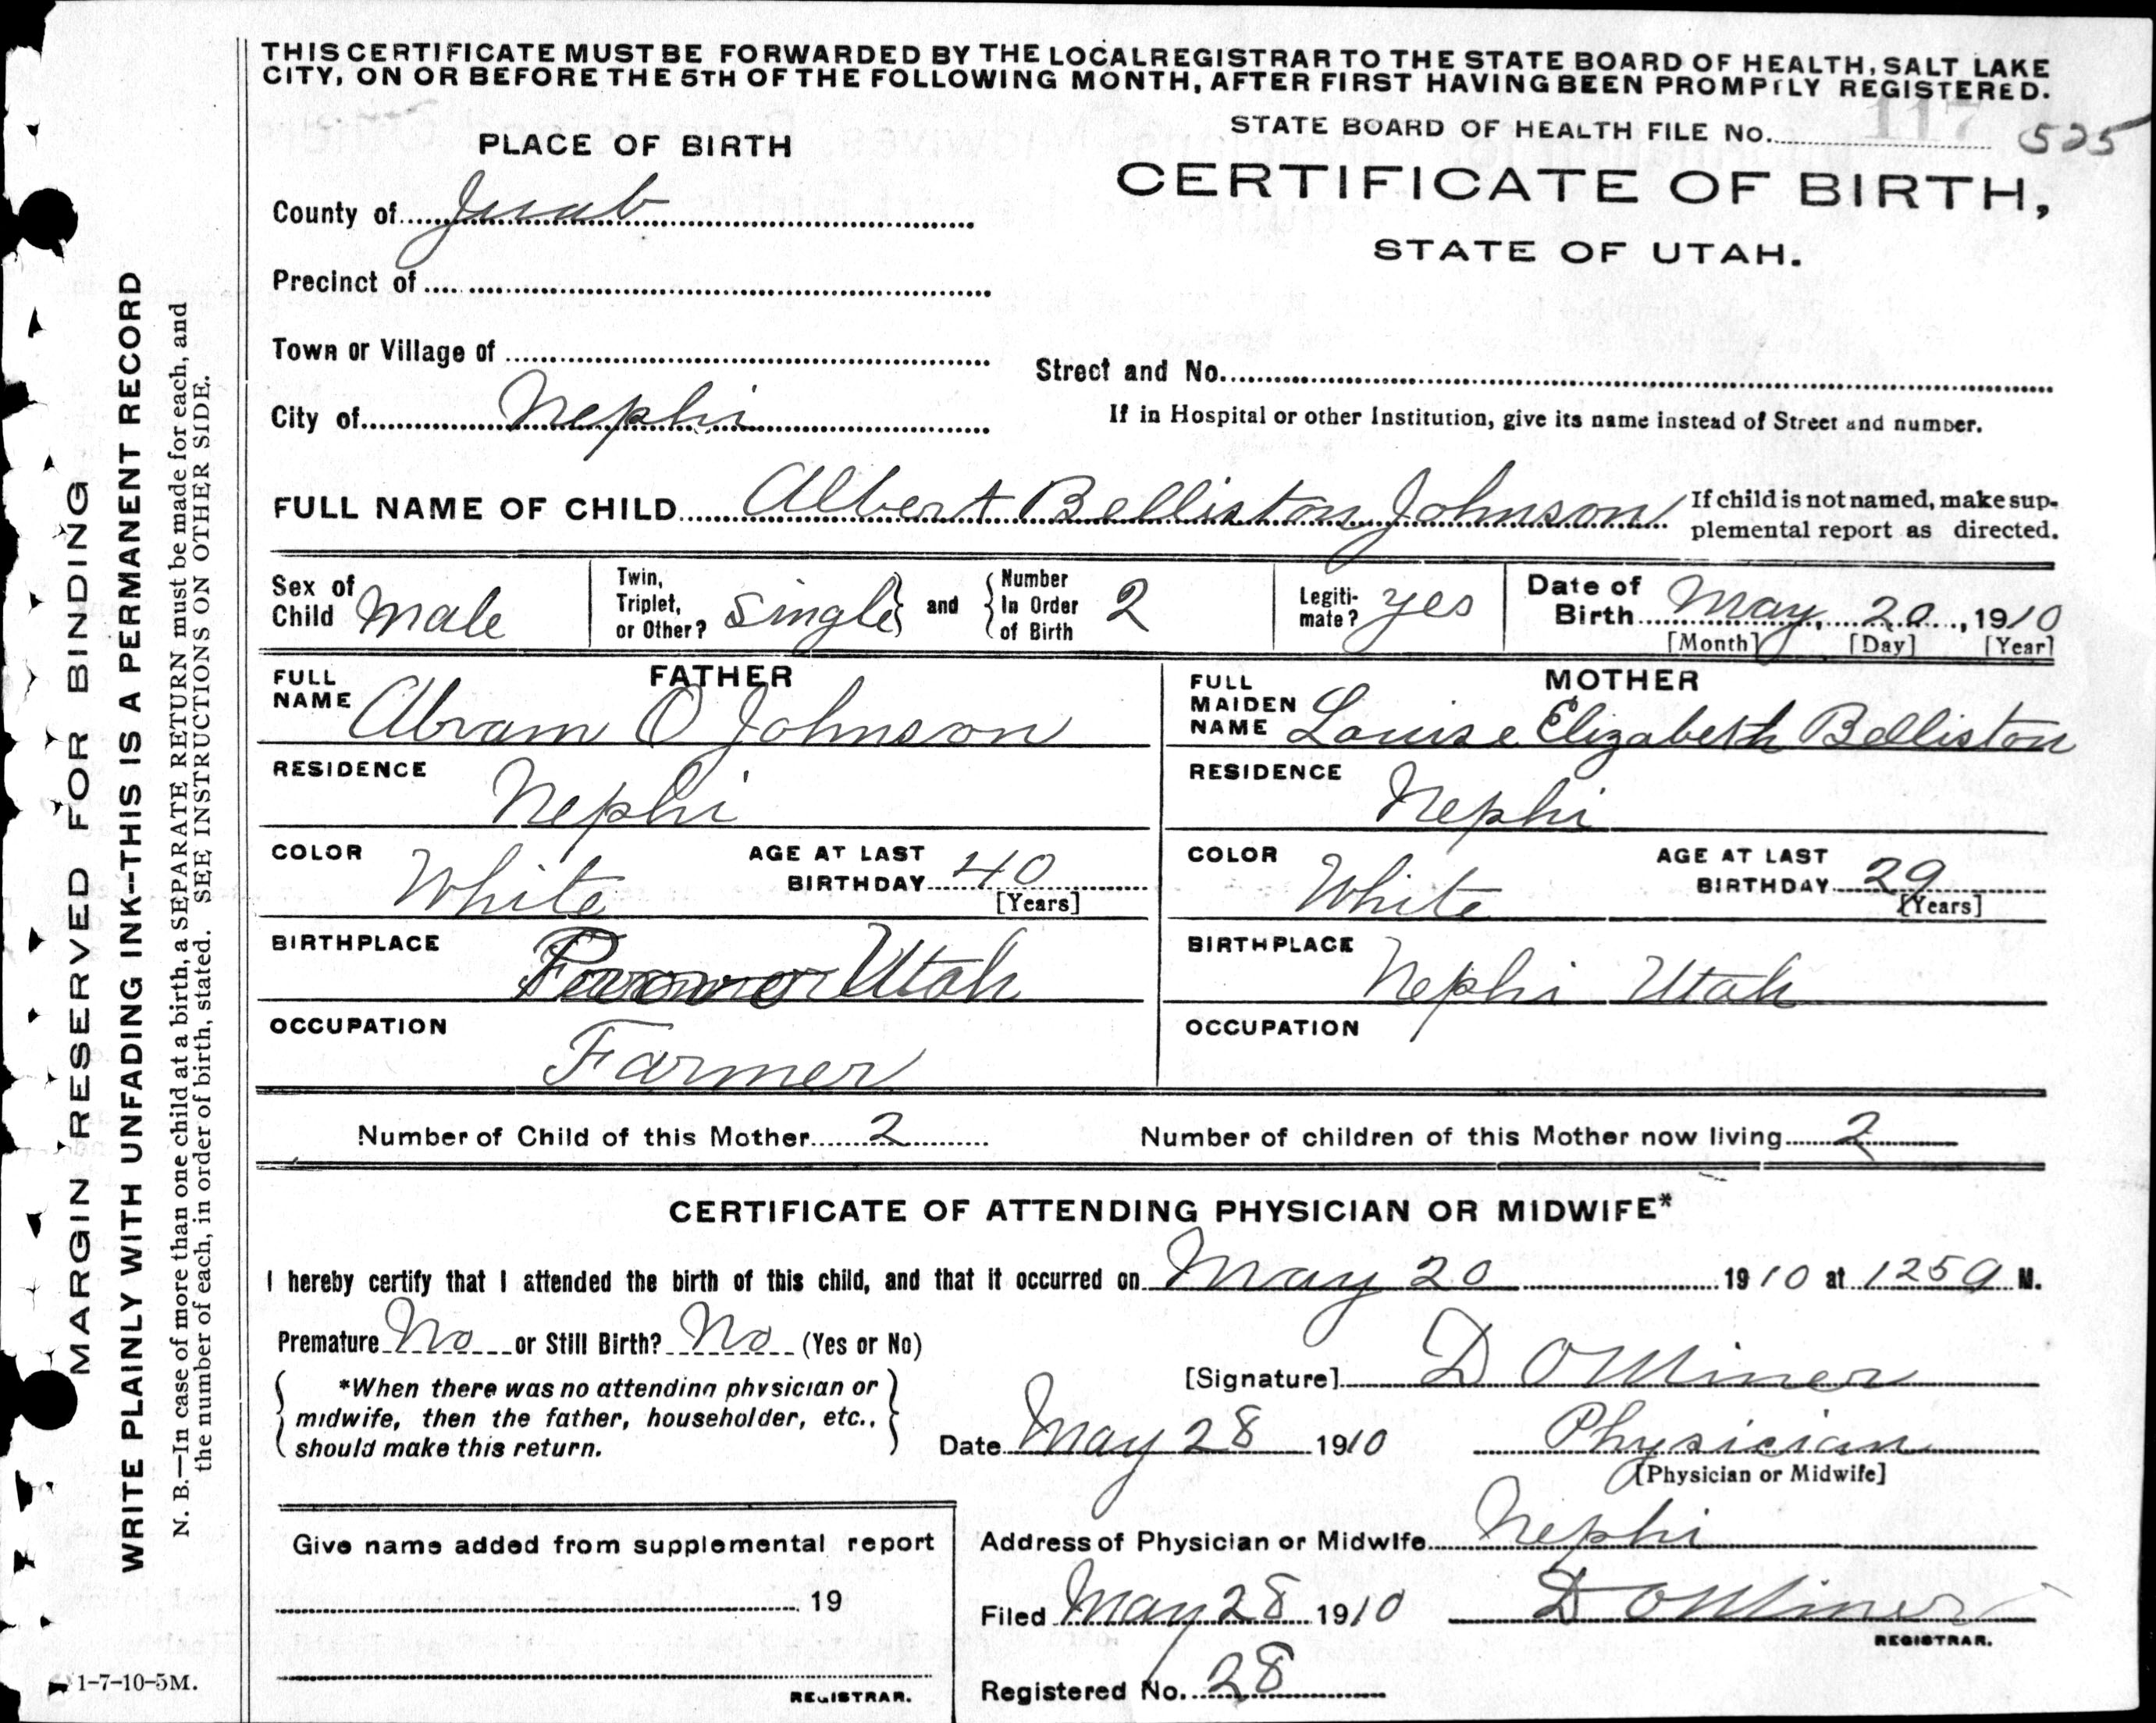 THIS CERTIFICATE MUST BE FORWARDED BY THE LOCAL REGISTRAR TO THE STATE BOARD OF HEALTH, SALT LAKE
CITY, ON OR BEFORE THE 5TH OF THE FOLLOWING MONTH, AFTER FIRST HAVING BEEN PROMPTLY REGISTERED.
STATE BOARD OF HEALTH FILE No. 117 525
PLACE OF BIRTH
CERTIFICATE OF BIRTH,
STATE OF UTAH.
County of Juab
Precinct of
Town or Village of
Street and No.
City of Nephi
If in Hospital or other Institution, give its name instead of Street and number.
FULL NAME OF CHILD Albert Belliston Johnson
If child is not named, make sup-
plemental report as directed.
Sex of Child Male
Twin, Triplet, or Other? Single and Number In Order of Birth 2
Legiti-mate? yes
Date of Birth May, 20, 1910
[Month] [Day] [Year]
FATHER
FULL NAME Abram O Johnson
RESIDENCE Nephi
COLOR White AGE AT LAST BIRTHDAY 40
[Years]
BIRTHPLACE Utah
OCCUPATION Farmer
MOTHER
FULL MAIDEN NAME Louise Elizabeth Belliston
RESIDENCE Nephi
COLOR White AGE AT LAST BIRTHDAY 29
[Years]
BIRTHPLACE Nephi Utah
OCCUPATION
Number of Child of this Mother 2 Number of children of this Mother now living 2
CERTIFICATE OF ATTENDING PHYSICIAN OR MIDWIFE*
I hereby certify that I attended the birth of this child, and that it occurred on May 20 1910 at 1259 M.
Premature No or Still Birth? No (Yes or No)
*When there was no attending physician or
midwife, then the father, householder, etc.,
should make this return.
[Signature] D O Miner
Date May 28 1910 Physician
[Physician or Midwife]
Give name added from supplemental report
19
REGISTRAR.
Address of Physician or Midwife Nephi
Filed May 28 1910 D O Miner
REGISTRAR.
Registered No. 28
1-7-10-5M.
MARGIN RESERVED FOR BINDING
WRITE PLAINLY WITH UNFADING INK--THIS IS A PERMANENT RECORD
N. B.—In case of more than one child at a birth, a SEPARATE RETURN must be made for each, and
the number of each, in order of birth, stated. SEE INSTRUCTIONS ON OTHER SIDE.